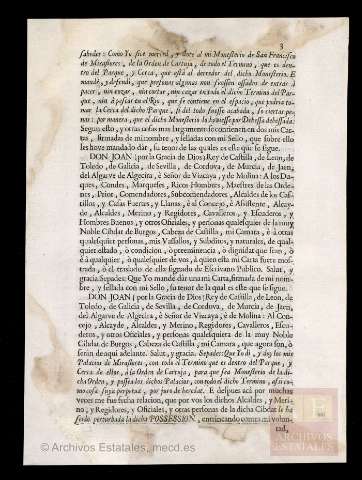 3
sabedes: Como Yo fice merced, y dove al mi Monesterio de San Francisco
de Miraflores, de la Orden de Cartuja, de todo el Termino, que es den-
tro del Parque, y Cerca, que está al derredor del dicho Monesterio. E
mandé, y defendí, que personas algunas non fuessen ossados de entrar à
pacer, nin cazar, nin cortar, nin cazar entodo el dicho Termino del Par-
que, nin à pescar en el Rio, que se contiene en el espacio, que podria to-
mar la Cerca del dicho Parque, si del todo fuesse acabado, so ciertas pe-
nas: por manera, que el dicho Monesterio lo hoviesse por Debessa debessada:
Segun esto, y otras cosas mas largamente se contienen en dos mis Car-
tas, firmadas de mi nombre, y selladas con mi Sello, que sobre ello
les hove mandado dár, su tenor de las quales es este que se sigue.
DON JOAN; por la Gracia de Dios, Rey de Castilla, de Leon, de
Toledo, de Galicia, de Sevilla, de Cordova, de Murcia, de Jaen,
del Algarve de Algecira, è Señor de Vizcaya, y de Molina: A los Du-
ques, Condes, Marqueses, Ricos Hombres, Maestres de las Orde-
nes, Prior, Comendadores, Subcomendadores, Alcaldes de los Cas-
tillos, y Casas Fuertes, y Llanas, è al Consejo, è Asistente, Alcay-
de, Alcaldes, Merino, y Regidores, Cavalleros, y Escuderos, y
Hombres Buenos, y otros Oficiales, y personas qualesquier de la muy
Noble Cibdat de Burgos, Cabeza de Castilla, mi Camara, è à otras
qualesquier personas, mis Vassallos, y Subditos, y naturales, de qual-
quier estado, ò condicion, ò preeminencia, ò dignidat que sean, ò
è à qualquier, ò qualesquier de vos, à quien esta mi Carta fuere mos-
trada, ò el traslado de ella signado de Escrivano Publico. Salut, y
gracia. Sepades: Que Yo mandé dár una mi Carta, firmada de mi nom-
bre, y sellada con mi Sello, su tenor de la qual es este que se sigue.
DON JOAN; por la Gracia de Dios Rey de Castilla, de Leon, de
Toledo, de Galicia, de Sevilla, de Cordova, de Murcia, de Jaen,
del Algarve de Algecira, è Señor de Vizcaya, y de Molina: Al Con-
cejo, Alcayde, Alcaldes, y Merino, Regidores, Cavalleros, Escu-
deros, y otros Oficiales, y personas qualesquiera de la muy Noble
Cibdat de Burgos, Cabeza de Castilla, mi Camara, que agora son, ò
serán de aqui adelante. Salut, y gracia. Sepades: Que Yo dí, y doy los mis
Palacios de Miraflores, con todo el Termino que es dentro del Parque, y
Cerca de ellos, à la Orden de Cartuja, para que sea Monesterio de la di-
cha Orden, y possea los dichos Palacios, con todo el dicho Termino, assi co-
mo cosa suya propia, por juro de heredat. E despues acá por muchas
veces me fue fecha relacion, que por vos los dichos Alcaldes, y Meri-
no, y Regidores, y Oficiales, y otras personas de la dicha Cibdat le ha
seydo perturbada la dicha POSSESSION, entrando contra mi volun-
tad,
ARCHIVOS
ESTATALES
© Archivos Estatales, mecd.es